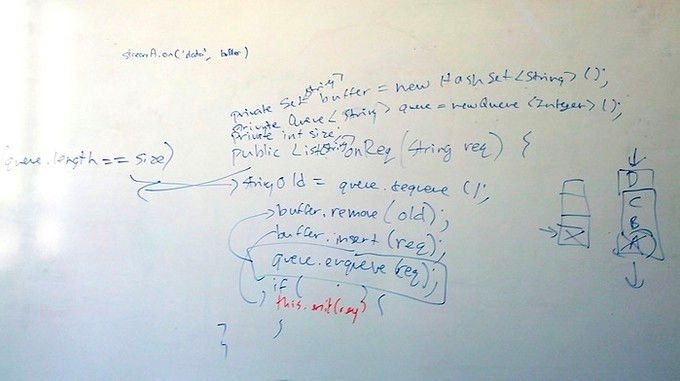 streamA.on('data', buffer)
private Set<string> buffer = new HashSet<String>();
private Queue<String> queue = new Queue<Integer>();
private int size;
public List<String> onReq(String req) {
queue.length == size)
string old = queue.dequeue();
buffer.remove(old);
buffer.insert(req);
queue.enqueue(req);
if ( . ) {
this.emit(req)
}
}
}
D
C
B
A